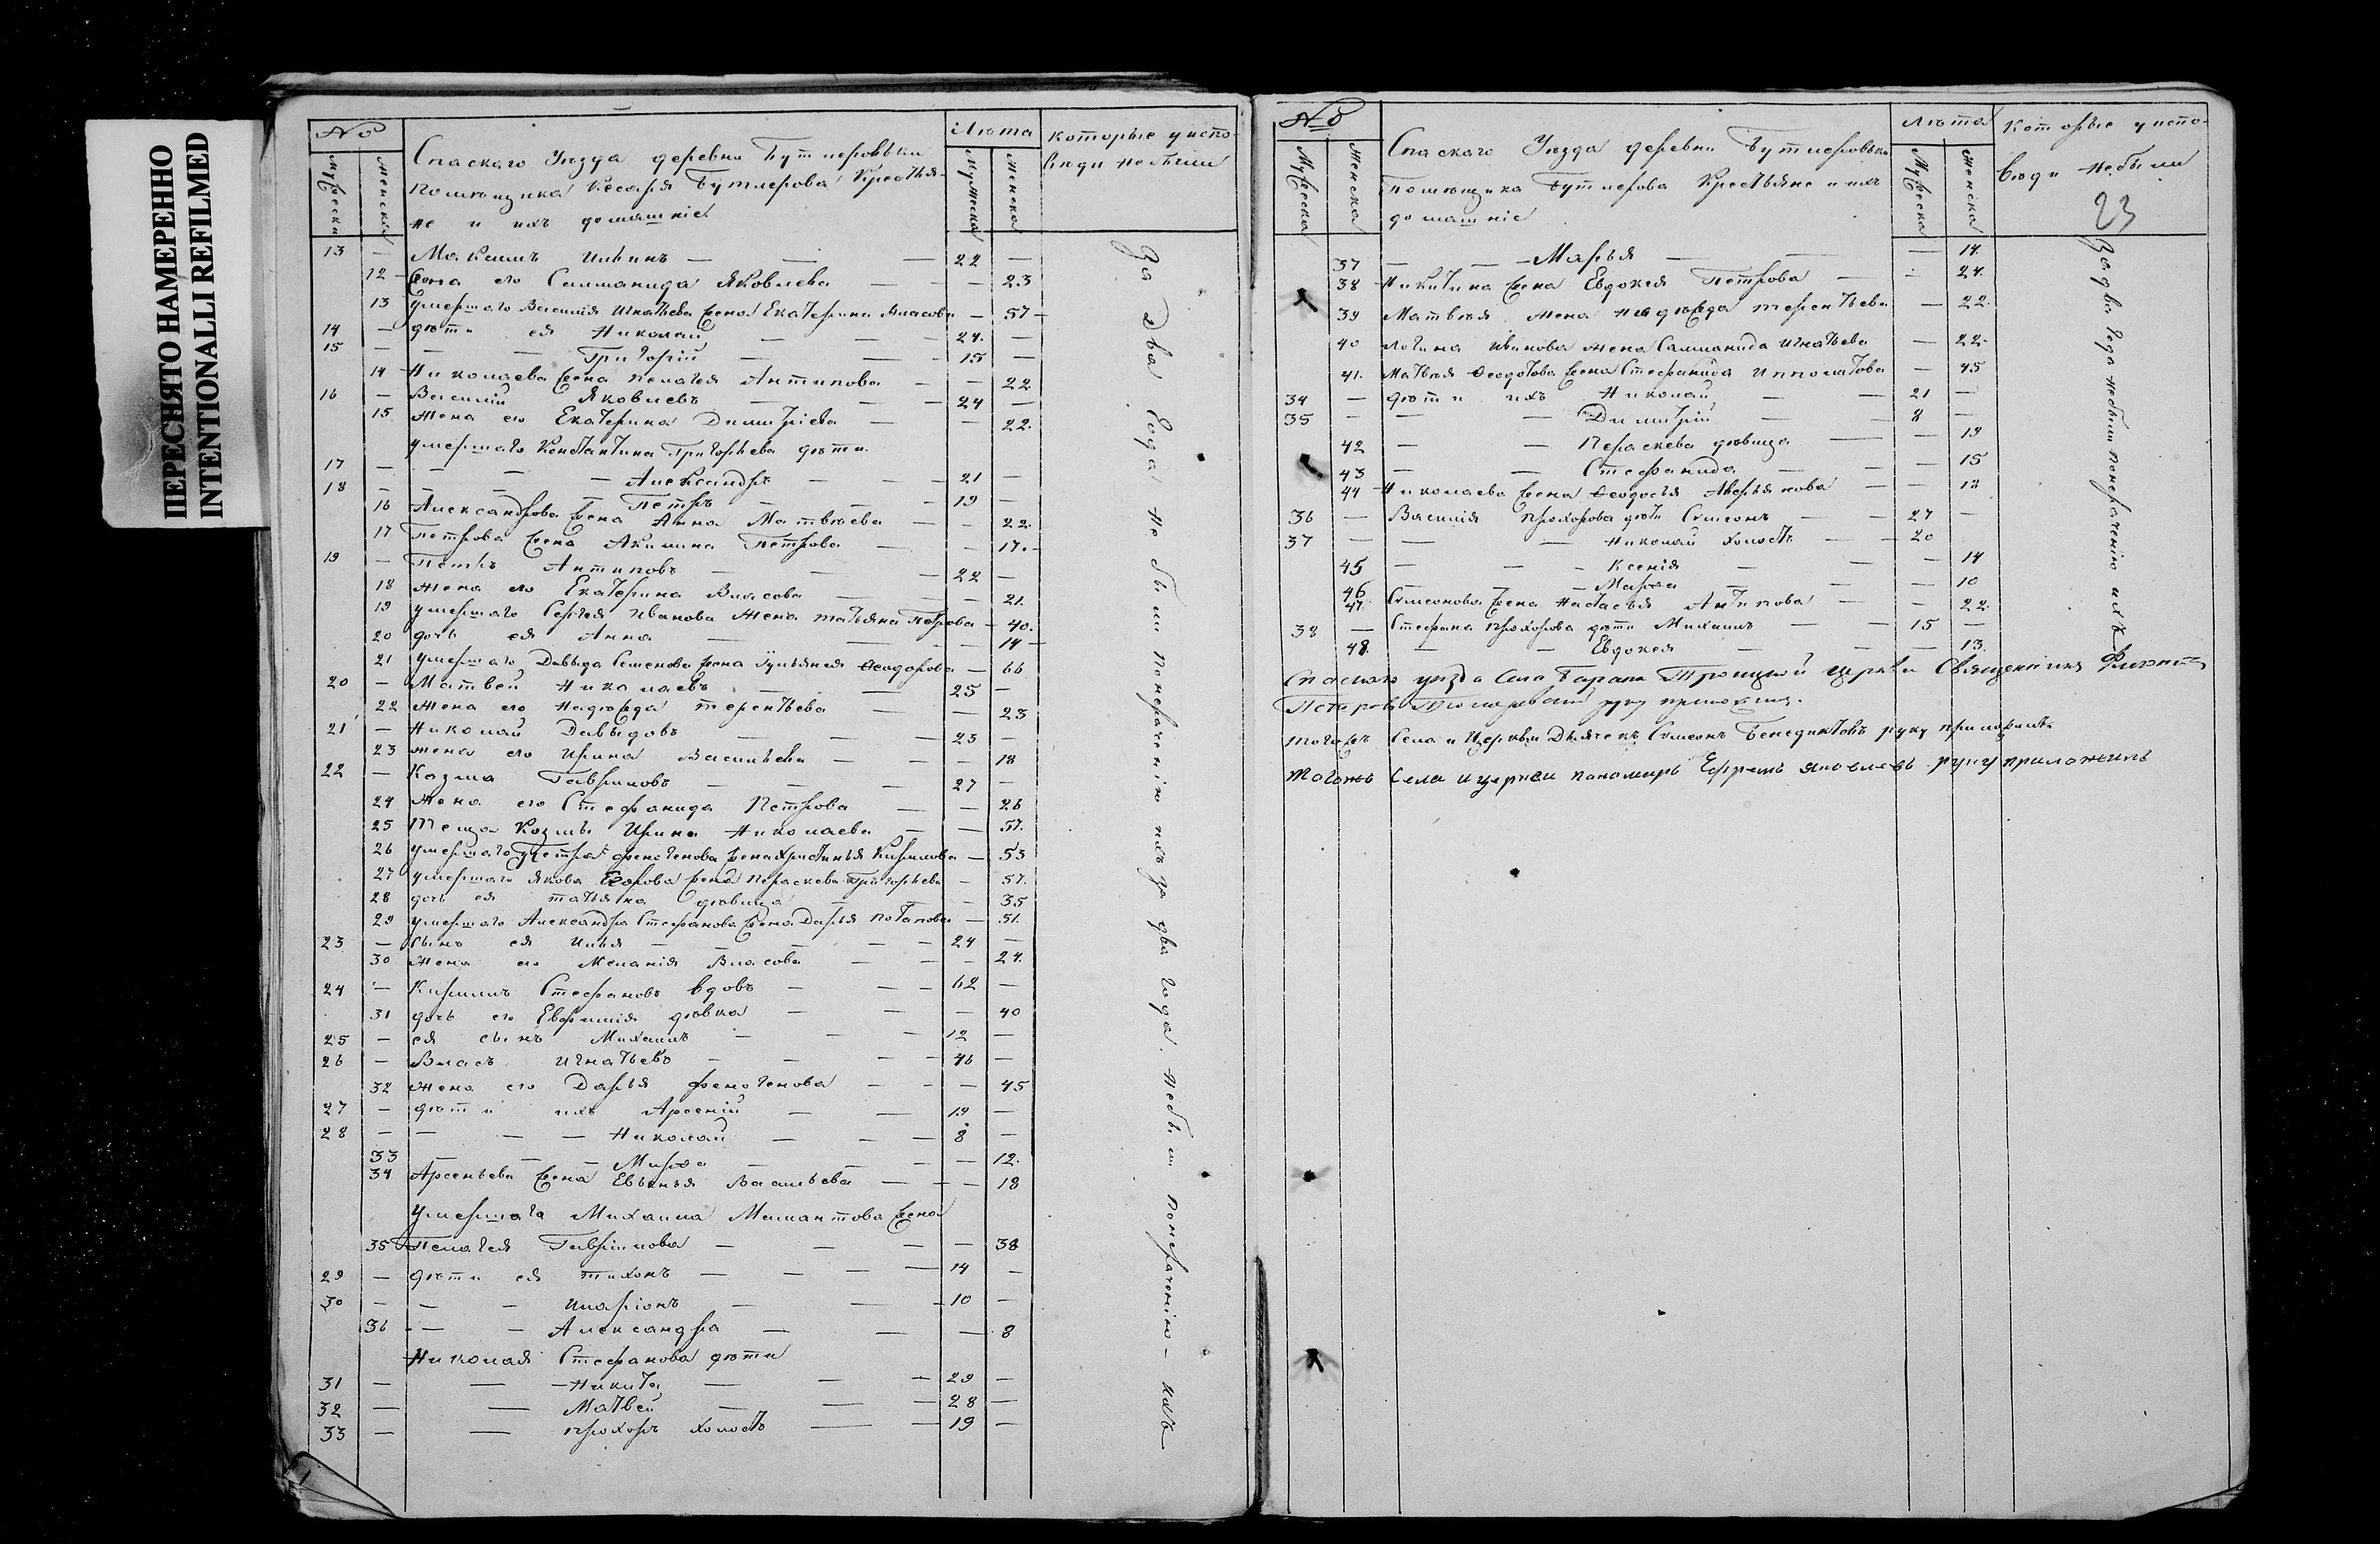 ПЕРЕСНЯТО НАМЕРЕННО
INTENTIONALLI REFILMED
№
Мужеска
женска
Спаскаго Уѣзда деревни Бутлеровки
помѣщика Кесаря Бутлерова Крестья-
не и ихъ домашніе
Лѣта
Мужеска
женска
которые у испо-
вѣди небыли
13 — Максимъ Ильинъ — — — 22 —
12 жена его Саламанида Яковлева — — — 23
13 умершаго Василія Игнатьева жена Екатерина Власова — 57 —
14 — дѣти ея Николай — — — 24. —
15 — — — Григорій — — 15 —
14 Николаева жена Пелагея Антипова — — 22
16 — Василій Яковлевъ — — — 24 —
15 жена его Екатерина Димитріева — — 22.
умершаго Константина Григорьева дѣти.
17 — — — — Александръ — — — 21 —
18 — — — — Петръ — — 19 —
16 Александрова жена Анна Матвѣева — — 22.
17 Петрова жена Акилина Петрова — — 17. —
19 — Петръ Антиповъ — — — 22 —
18 жена его Екатерина Власова — — — 21.
19 умершаго Сергея Иванова жена татьяна Петрова — 40.
20 дочь ея Анна — — — — 14 —
21 умершаго Давыда Семенова жена Ѳеодорова — 66
20 — Матвей Николаевъ — — 25 —
22 жена его надѣжда терентьева — — 23
21 — Николай Давыдовъ — — — 23 —
23 жена его Ирина Васильева — — — 18
22 — Казма Гавриловъ — — — 27 —
24 жена его Стефанида Петрова — — 26
25 Теща Козмы Ирина Николаева — — 57.
26 умершаго Петра феногенова жена Христинья Кирилова — 53
27 умершаго Якова жена Пераскева Григорьева — 57.
28 дочь ея татьяна дѣвица — — — 35
29 умершаго Александра Стефанова жена Дарья Потапова — 51.
23 — Сынъ ея Илья — — — — — 24 —
30 жена его Меланія Власова — — — 24.
24 — Кирилъ Стефановъ вдовъ — — — 62 —
31 дочь его дѣвка — — — 40
25 — ея сынъ Михаилъ — — — 12 —
26 — Власъ Игнатьевъ — — — 46 —
32 жена его Дарья феногенова — — — 45
27 — дѣти ихъ Арсеній — — 19 —
28 — — — — Николай — — — 8 —
33 — — — Марѳа — — — — 12.
34 Арсеньева жена Васильева — — — 18
Умершаго Михаила Мамантова жена
35 Пелагея Гаврилова — — — — 38
29 — дѣти ея тихонъ — — — — 14 —
30 — — — Иларіонъ — — — 10 —
36 — — — Александра — — — 8
Николая Стефанова дѣти
31 — — — Никита — — — 29 —
32 — — Матвей — — — 28 —
33 — — прохоръ холостъ — — 19 —
За два года не были понераченію ихъ за два года. Небыли понераченію — ихъ
№
Мужеска
женска
Спаскаго Уѣзда деревни Бутлеровки
Помѣщика Бутлерова Крестьяне и ихъ
домашніе
Лѣта
Мужеска
женска
которые у испо-
вѣди небыли
23
37 — — — Марья — — — 14.
38 Никитина жена Евдокея Петрова — — 24.
39 Матвѣя жена надѣжда терентьева — 22.
40 логина Иванова жена Саламанида Игнатьева — 22.
41. Матвея Ѳеодотова жена Стефанида Ипполитова — 45
34 — дѣти ихъ Николай — — 21 —
35 — — — Димитрій — — 8 —
42 — — Пераскева дѣвица — — 19
43 — — Стефанида — — — 15
44 Николаева жена Ѳеодосья Аверьянова — — 18
36 — Василія Прохорова дѣти Симеонъ — — 27 —
37 — — — Николай холостъ — — 20
45 — — — Ксенія — — — 14
46 — — — Марѳа — — — 10
47. Симеонова жена Настасья Антипова — — 22.
38 — Стефана Прохорова дѣти Михаилъ — — 15 —
48. — — Евдокея — — — 13.
За два года небыли понераченію ихъ
Спаскаго уѣзда Села Троицкой Церкви Священникъ
руку приложилъ.
тогожъ Села и Церкви Дьячекъ Симеонъ Бенедиктовъ руку приложилъ
тогожъ Села и церкви пономарь Ефремъ яковлевъ руку приложилъ